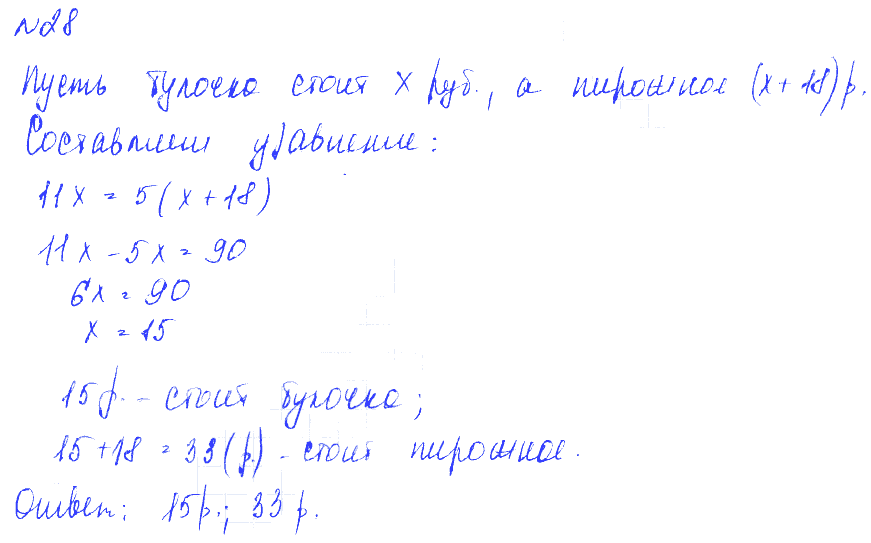 №28
Пусть булочка стоит x руб., а пирожное (x+18) р.
Составим уравнение:
11x = 5(x+18)
11x - 5x = 90
6x = 90
x = 15
15 р. - стоит булочка;
15+18 = 33 (р.) - стоит пирожное.
Ответ: 15 р.; 33 р.